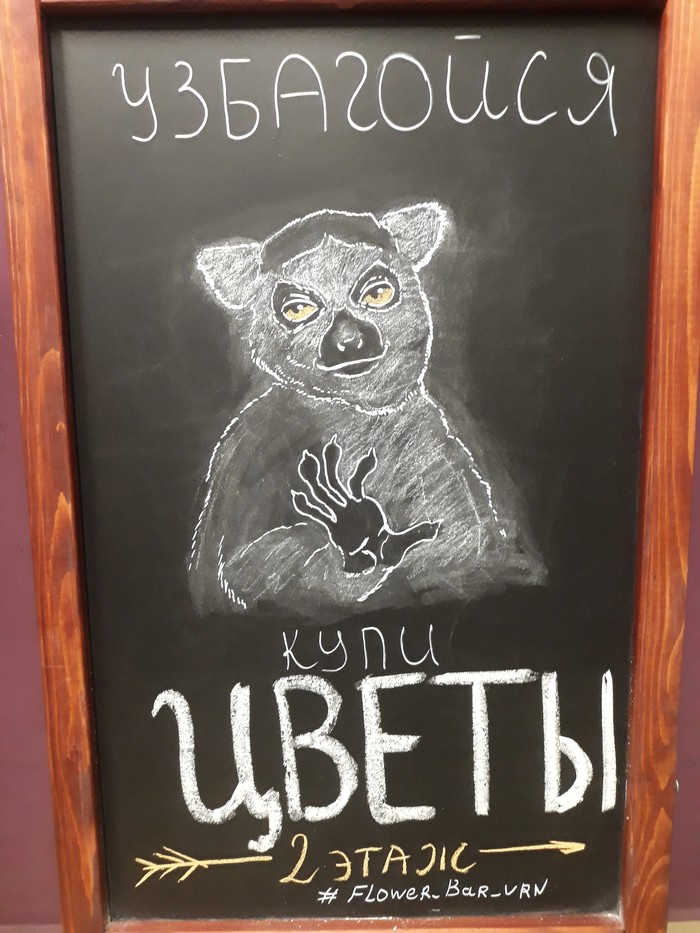 УЗБАГОЙСЯ
КУПИ
ЦВЕТЫ
2 ЭТАЖ
# FLOWER_BAR_VRN